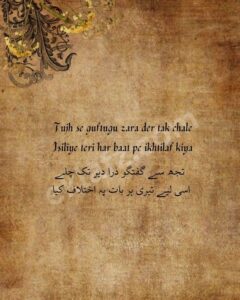 Tujh se guftugu zara der tak chale
Isiliye teri har baat pe ikhtilaf kiya
تجھ سے گفتگو ذرا دیر تک چلے
اسی لیے تیری ہر بات پہ اختلاف کیا